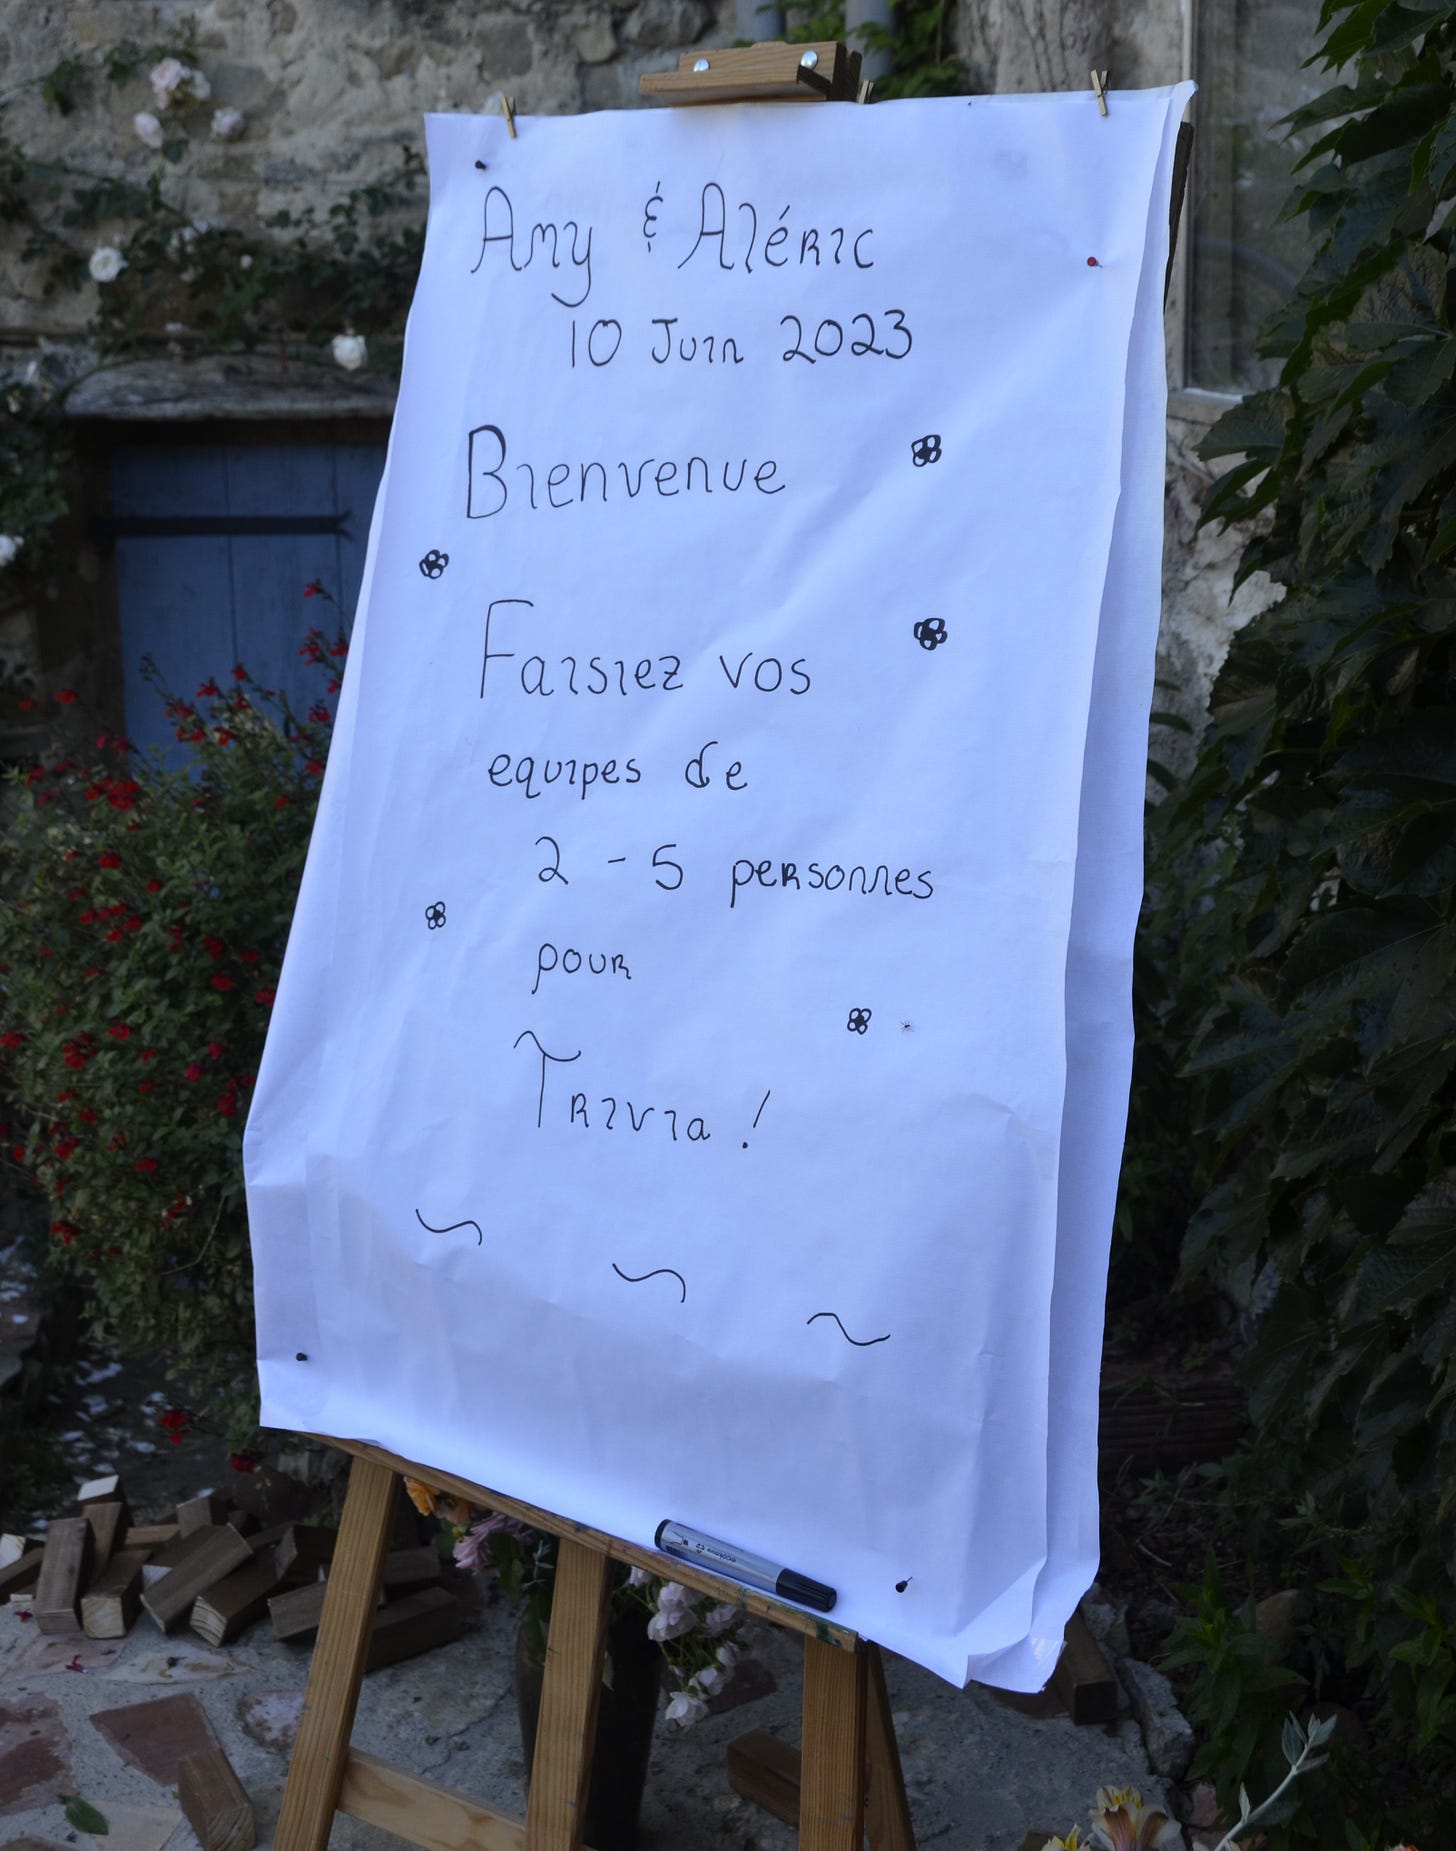 Amy & Aléric
10 Juin 2023
Bienvenue
Faisiez vos
equipes de
2 - 5 personnes
pour
Trivia !